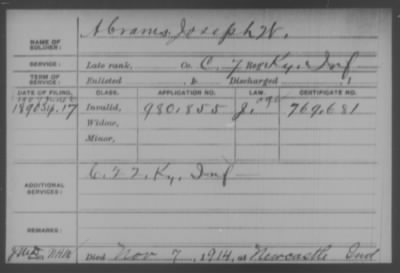 Abrams, Joseph W.
NAME OF SOLDIER:
SERVICE: Late rank, Co. C, 7 Reg't Ky. Inf
TERM OF SERVICE: Enlisted , 1 Discharged , 1
DATE OF FILING. CLASS. APPLICATION NO. LAW. CERTIFICATE NO.
1890 17 Invalid, 980.855 J. 769.681
Widow,
Minor,
ADDITIONAL SERVICES: Ky. Inf
REMARKS:
Died Nov 7, 1914, at Newcastle Ind